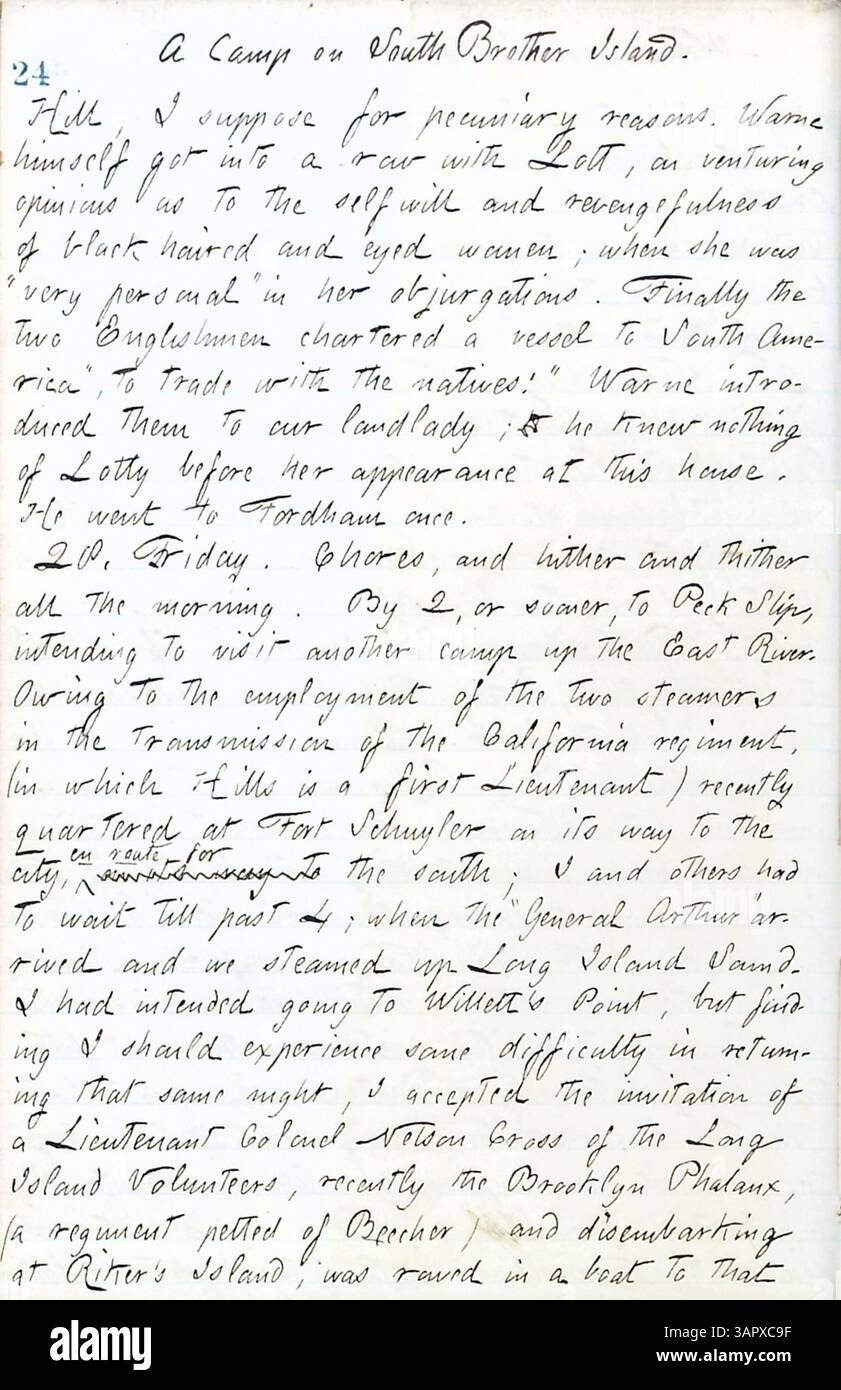 A Camp on South Brother Island.
24
Hill, I suppose for pecuniary reasons. Warne
himself got into a row with Lott, on venturing
opinions as to the self will and revengefulness
of black haired and eyed women; when she was
"very personal" in her objurgations. Finally the
two Englishmen chartered a vessel to South Ame-
rica", to trade with the natives!" Warne intro-
duced them to our landlady; he knew nothing
of Lotty before her appearance at this house.
He went to Fordham once.
28. Friday. Chores, and hither and thither
all the morning. By 2, or sooner, to Peck Slip,
intending to visit another camp up the East River.
Owing to the employment of the two steamers
in the transmission of the California regiment,
(in which Hills is a first Lieutenant) recently
quartered at Fort Schuyler on its way to the
city, en route for on its way to the south; I and others had
to wait till past 4; when the "General Arthur" ar-
rived and we steamed up Long Island Sound.
I had intended going to Willett's Point, but find-
ing I should experience some difficulty in return-
ing that same night, I accepted the invitation of
a Lieutenant Colonel Nelson Cross of the Long
Island Volunteers, recently the Brooklyn Phalanx,
(a regiment petted of Beecher) and disembarking
at Riker's Island, was rowed in a boat to that
alamy
Image ID: 3APXC9F
www.alamy.com